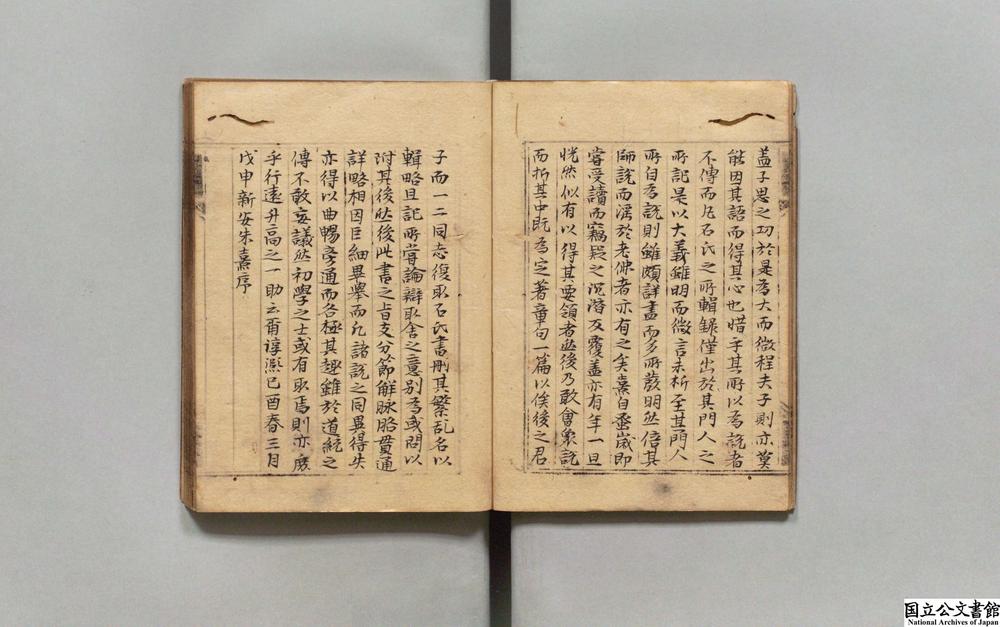 盖子思之功於是為大而微程夫子則亦莫
能因其語而得其心也惜乎其所以為說者
不傳而凡石氏之所輯錄僅出於其門人之
所記是以大義雖明而微言未析至其門人
所自為說則雖頗詳盡而多所發明然倍其
師說而淫於老佛者亦有之矣熹自蚤歲即
嘗受讀而竊疑之沉潜反覆盖亦有年一旦
恍然似有以得其要領者然後乃敢會衆說
而折其中既為定著章句一篇以俟後之君
子而一二同志復取石氏書刪其繁乱名以
輯略且記所嘗論辯取舍之意別為或問以
附其後然後此書之旨支分節解脉胳貫通
詳略相因巨細畢舉而凡諸說之同異得失
亦得以曲暢旁通而各極其趣雖於道統之
傳不敢妄議然初學之士或有取焉則亦庶
乎行遠升高之一助云甭淳熈己酉春三月
戊申新安朱熹序
国立公文書館
National Archives of Japan